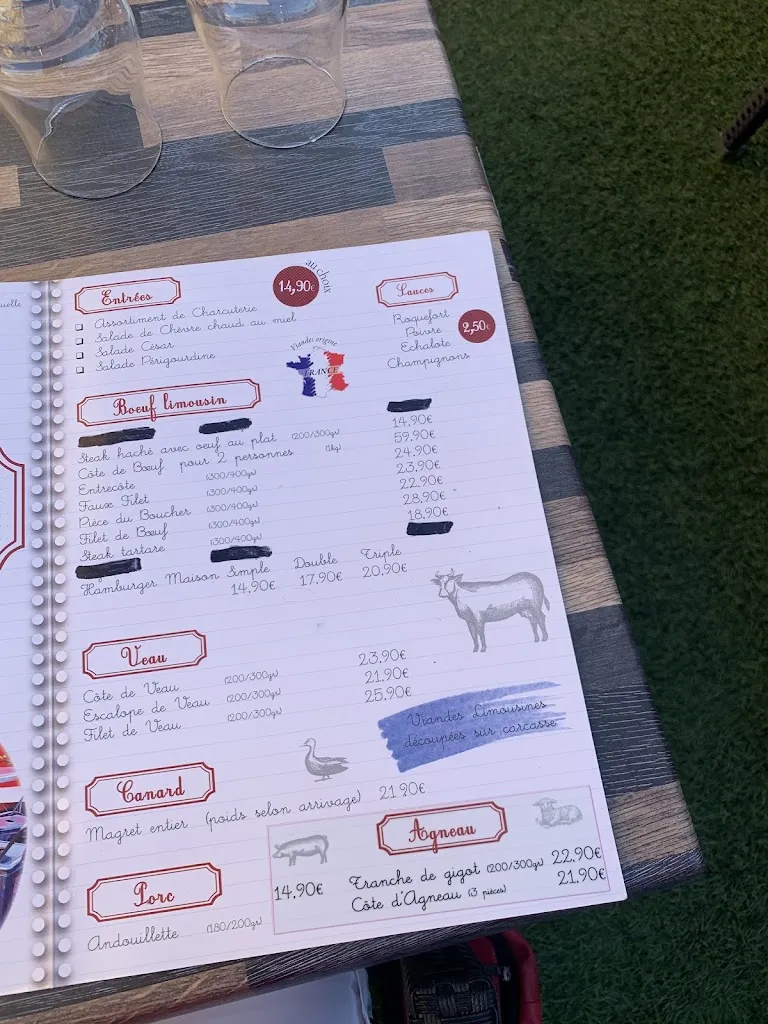 uelle
Entrées
au choix
14,90€
Assortiment de Charcuterie
Salade de Chèvre chaud au miel
Salade César
Salade Périgourdine
Sauces
Roquefort
Poivre
Echalote
Champignons
2,50€
Viandes origine
FRANCE
Boeuf limousin
Steak haché avec oeuf au plat (200/300gr) 14.90€
Côte de Bœuf pour 2 personnes (1kg) 59.90€
Entrecôte (300/400gr) 24.90€
Faux Filet (300/400gr) 23.90€
Pièce du Boucher (300/400gr) 22.90€
Filet de Bœuf (300/400gr) 28.90€
Steak tartare (300/400gr) 18.90€
Hamburger Maison Simple Double Triple
14.90€ 17.90€ 20.90€
Veau
Côte de Veau (200/300gr) 23.90€
Escalope de Veau (200/300gr) 21.90€
Filet de Veau (200/300gr) 25.90€
Viandes Limousines
découpées sur carcasse
Canard
Magret entier (poids selon arrivage) 21.90€
Porc
Andouillette (180/200gr) 14.90€
Agneau
Tranche de gigot (200/300gr) 22.90€
Côte d'Agneau (3 pièces) 21.90€